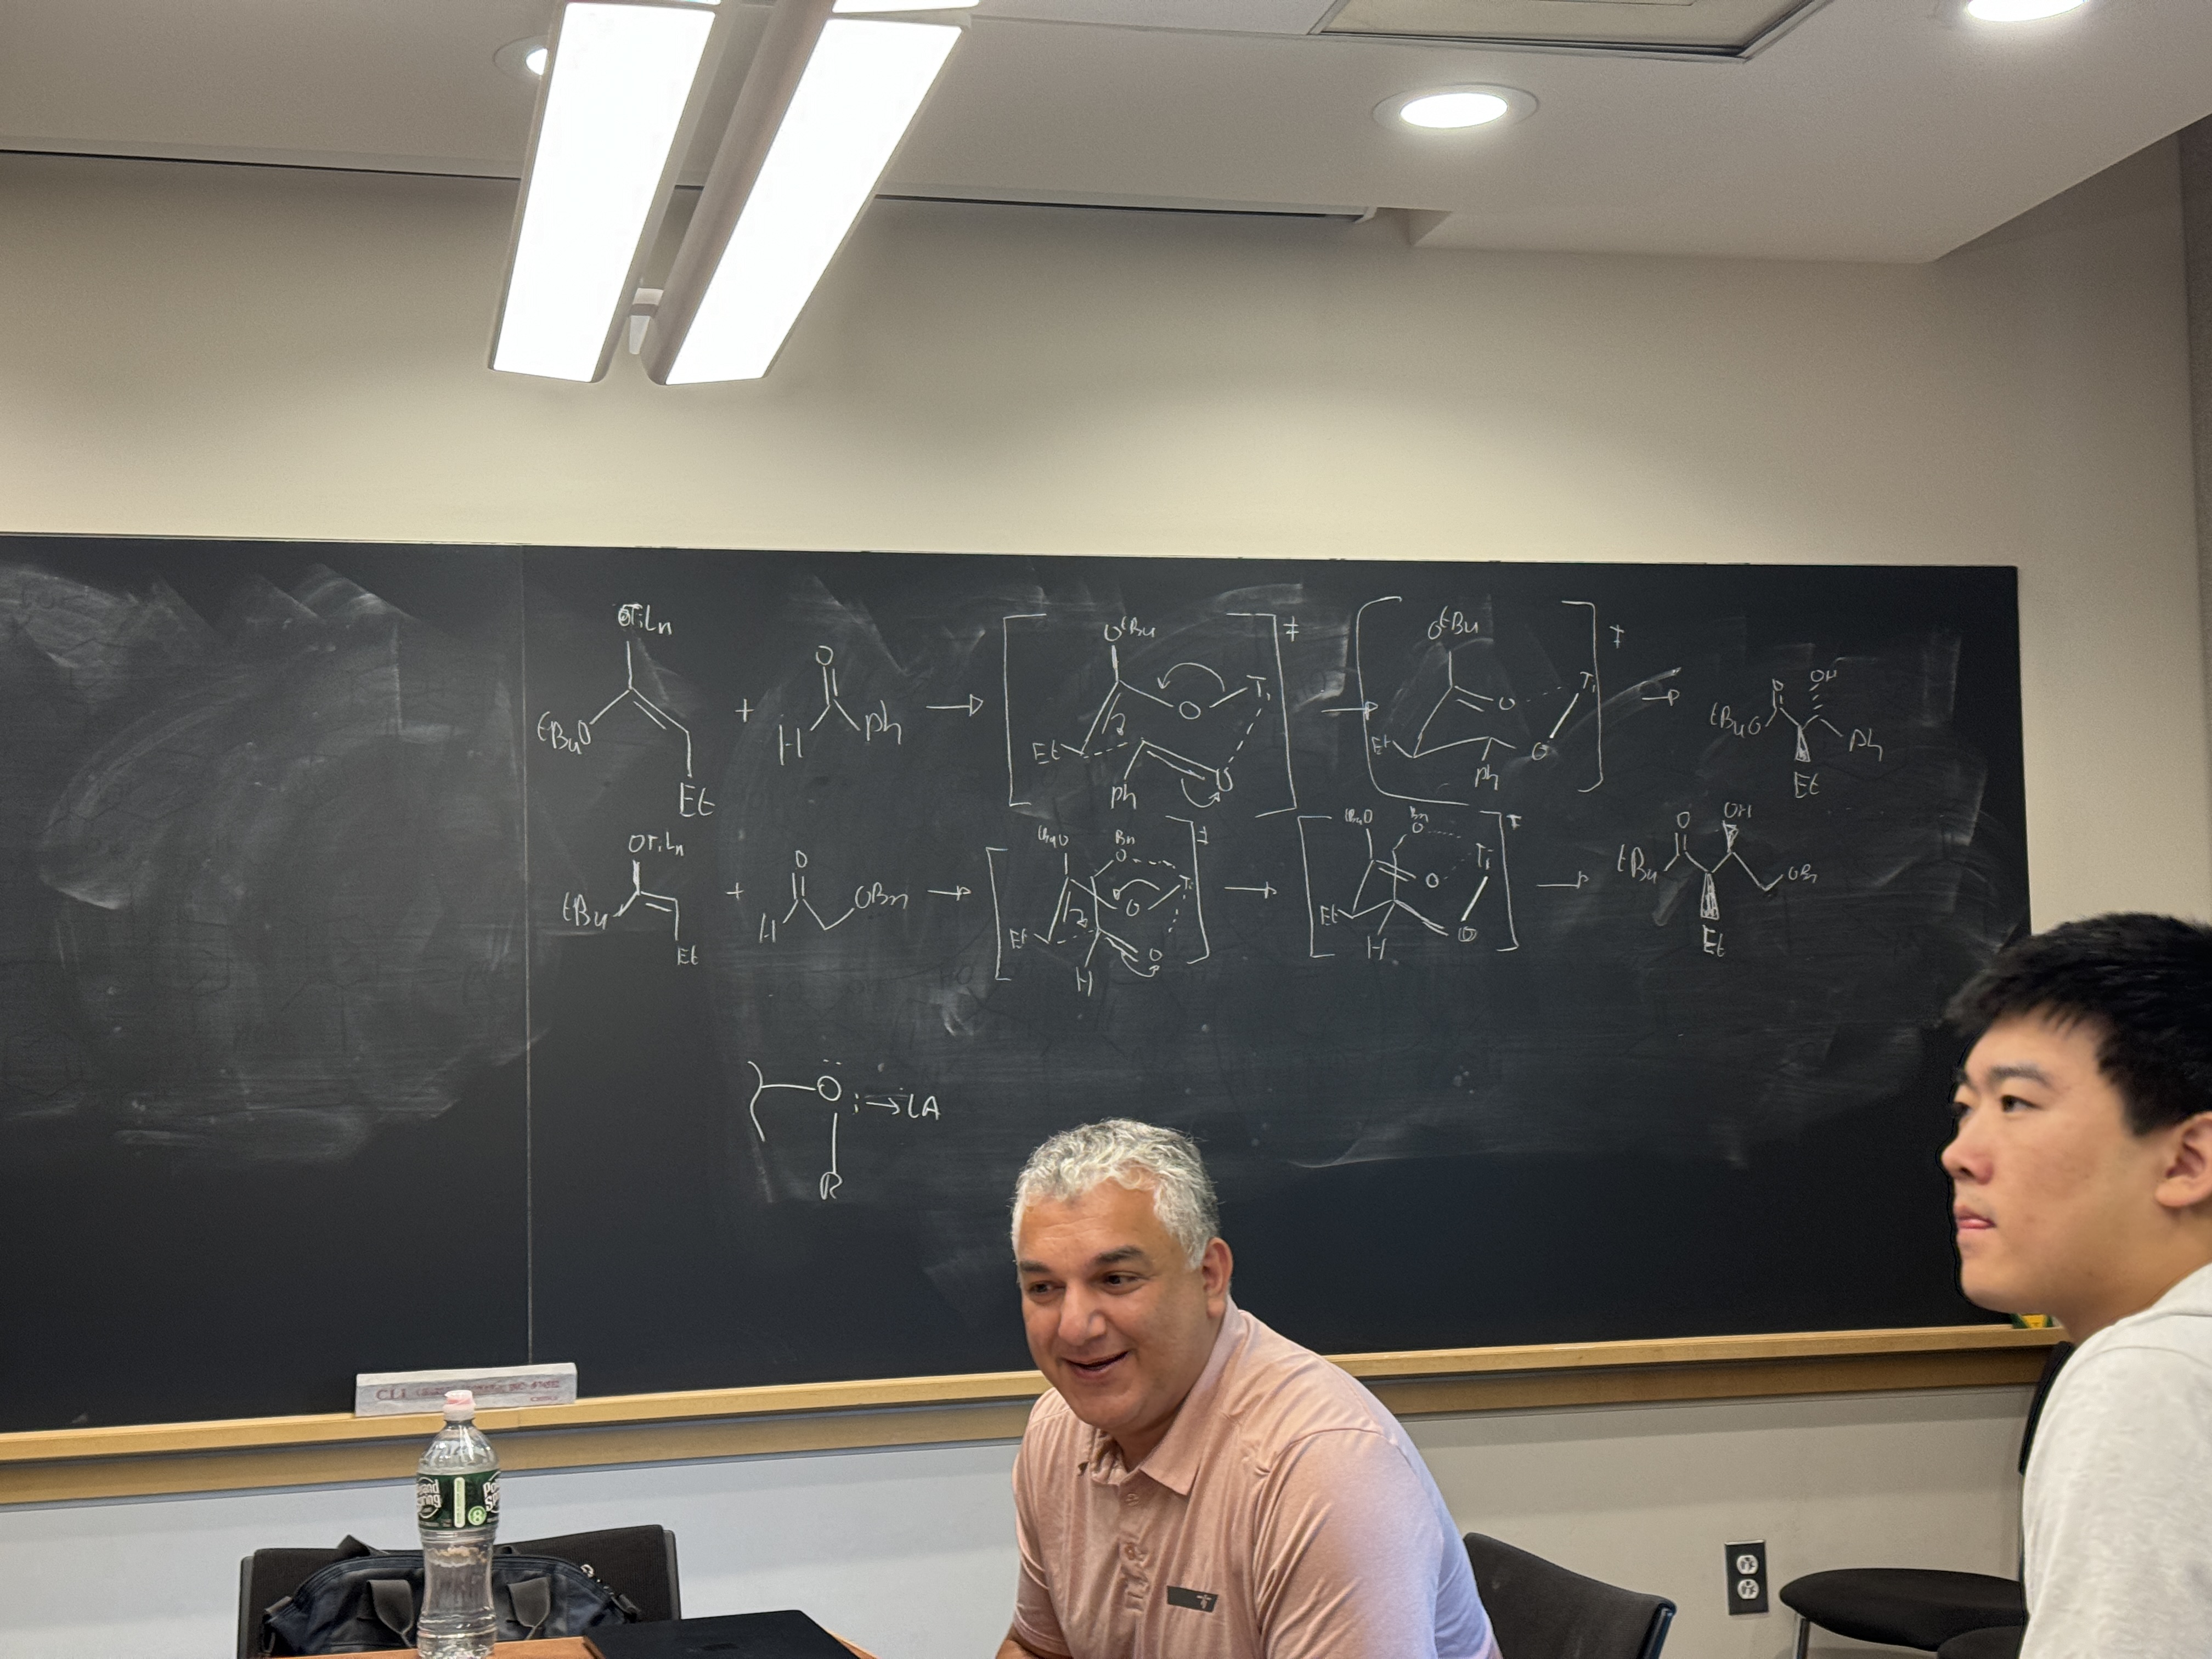 OTiLn
tBuO
Et
+
O
H
Ph
OtBu
O
Ti
Et
Ph
O
‡
OtBu
O
Ti
Et
Ph
O
‡
O
OH
tBuO
Ph
Et
OTiLn
tBu
Et
+
O
H
OBn
tBuO
Bn
O
Ti
O
Et
O
H
‡
tBuO
Bn
O
Ti
O
Et
O
H
‡
O
OH
tBu
OBn
Et
O : → LA
R